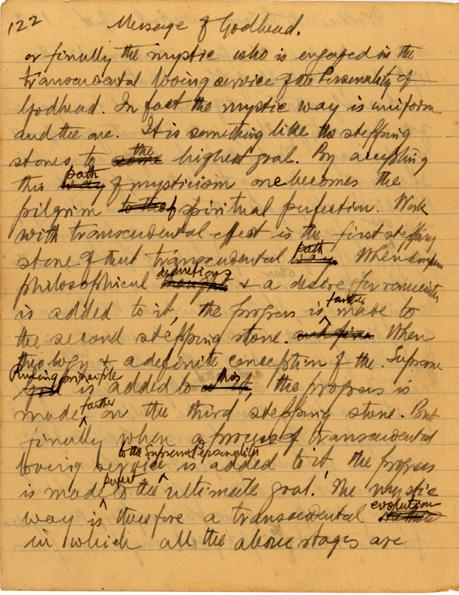 122 Message of Godhead.
or finally the mystic who is engaged in the
transcendental loving service of the Personality of
Godhead. In fact the mystic way is uniform
and the one. It is something like the stepping
stones to the highest goal. By accepting
this path of mysticism one becomes the
pilgrim to spiritual perfection. Work
with transcendental effect is the first stepping
stone of that transcendental path. When
philosophical & a desire for
is added to it, the progress is farther made to
the second stepping stone. When
theology & a definite conception of the Supreme
is added to this, the progress is
made farther on the third stepping stone. But
finally when a process of transcendental
loving service to the Supreme Personality is added to it the progress
is made to the ultimate goal. The mystic
way is therefore a transcendental evolution
in which all the above stages are